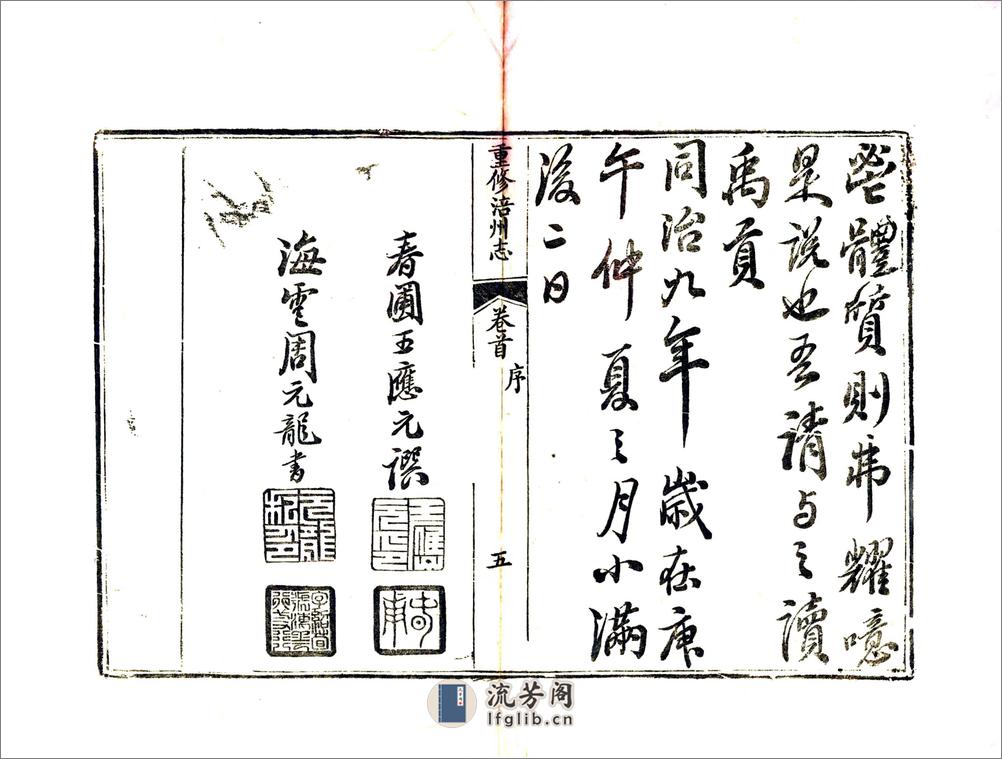 體質則弗耀噫
是說也吾請与之讀
禹貢
同治九年歲在庚
午仲夏之月小滿
後二日
重修涪州志
卷首
序
五
春圃王應元譔
王應元印
春圃
海雲周元龍書
流芳阁
lfglib.cn